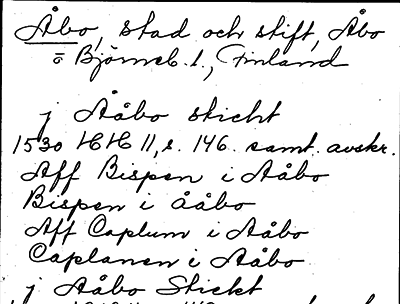 Åbo, stad och stift, Åbo
o Björneb. l., Finland
j Aåbo sticht
1530 HH 11, s. 146. samt. avskr.
Aff Bispen i Aåbo
Bispen i Aåbo
Aff Caplum i Aåbo
Caplanen i Aåbo
j Aåbo Stickt